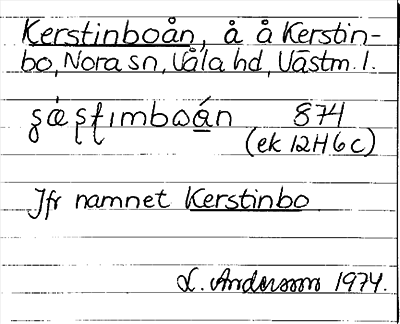 Kerstinboån, å å Kerstin-
bo, Nora sn, Våla hd, Västm. l.
şæ̀ʂʈımboán 874
(ek 12H6c)
Jfr namnet Kerstinbo
L. Andersson 1974.